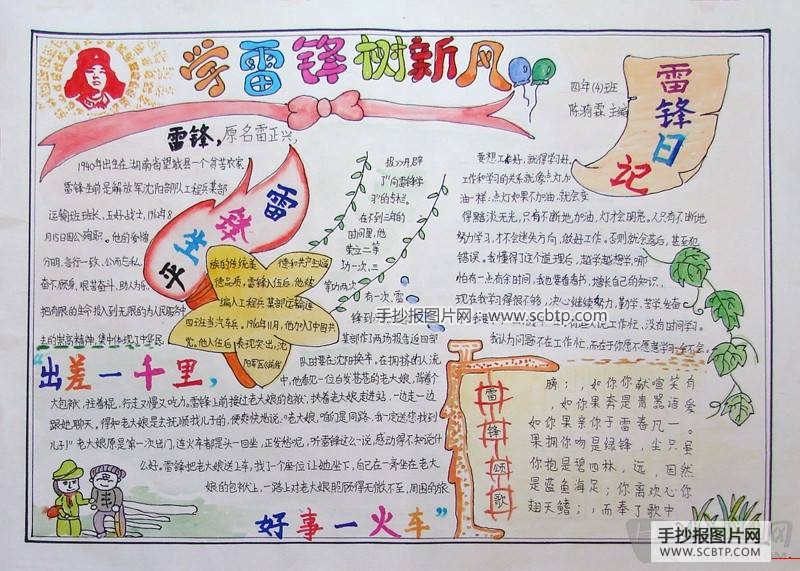 学雷锋树新风
四年(4)班
陈漪霖 主编
雷锋日记
雷锋,原名雷正兴,
1940年出生在湖南省望城县一个贫苦农家
雷锋生前是解放军沈阳部队工程兵某部
运输班班长、五好战士,1962年8
月15日因公殉职。他的爱憎
分明、言行一致、公而忘私、
奋不顾身、艰苦奋斗、助人为乐,
把有限的生命投入到无限的为人民服务中
去的崇高精神,集中体现了中华民
雷锋生平
族的传统美
德和共产主义道
德品质。雷锋入伍后,他被
编入工程兵某部运输连
四班当汽车兵。1960年11月,他加入中国共
党。他入伍后表现突出,沈
阳军区《前进
报》开辟
了"向雷锋学
习"的专栏。
在不到三年的
时间里,他
荣立二等
功一次,三
等功两次
要想工作好,就得学习好,
工作和学习的关系就像点灯加
油一样,点灯如果不加油,就会变
得黯淡无光,只有不断地加油,灯才会明亮。人只有不断地
努力学习,才不会迷失方向,做好工作。否则就会落后,甚至犯
错误。我懂得了这个道理后,越学越想学,哪
怕有一点有余时间,我也要看看书,增长自己的知识。
现在我学习得很不够,决心继续努力,勤学、苦学发奋
有些人说工作忙,没有时间学习。
我认为问题不在工作忙,而在于你愿不愿意学习,会不会
手抄报图片网
www.scbtp.com
"出差一千里,
某部作了两场报告返回部
队时要在沈阳换车,在拥挤的人流
中,他看见一位白发苍苍的老大娘,背着个
大包袱,拄着棍,行走又慢又吃力。雷锋上前接过老大娘的包袱,扶着老大娘走进站,一边走一边
跟她聊天,得知老大娘是去抚顺找儿子的,便爽快地说:"老大娘,咱们是同路,我一定送您找到
儿子!"老大娘原是第一次出门,连火车都是头一回坐,正发愁呢,听雷锋这么一说,感动得不知说什
么好。雷锋把老大娘送上车,找了个座位让她坐下,自己在一旁坐在老大
娘的包袱上,一路上对老大娘照顾得无微不至,周围的旅
好事一火车"
雷锋颂歌
滂;,如你你献喧笑有
,如你果奔是青嚣语爱
如你果亲你于雷春凡一。
果拥你吻是绿锋,尘只虽
你抱是碧四林,远,固然
是蓝鱼海足;你离欢心你
翅天鳍;,而奉了歌中
手抄报图片网
WWW.SCBTP.COM